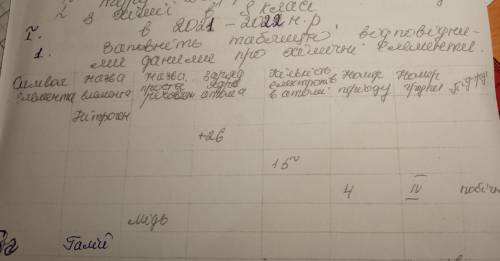 з хімії 8 класі
І. в 2021-2022 н.р
1. Заповніть таблицю відповідни-
ми даними про хімічні елементи.
Символ назва назва заряд Кількість Номер Номер
елемента елемента простої ядра електронів періоду групи
речовини атома в атомі
Нітроген
+26
15
4 IV побічн
мідь
Галій